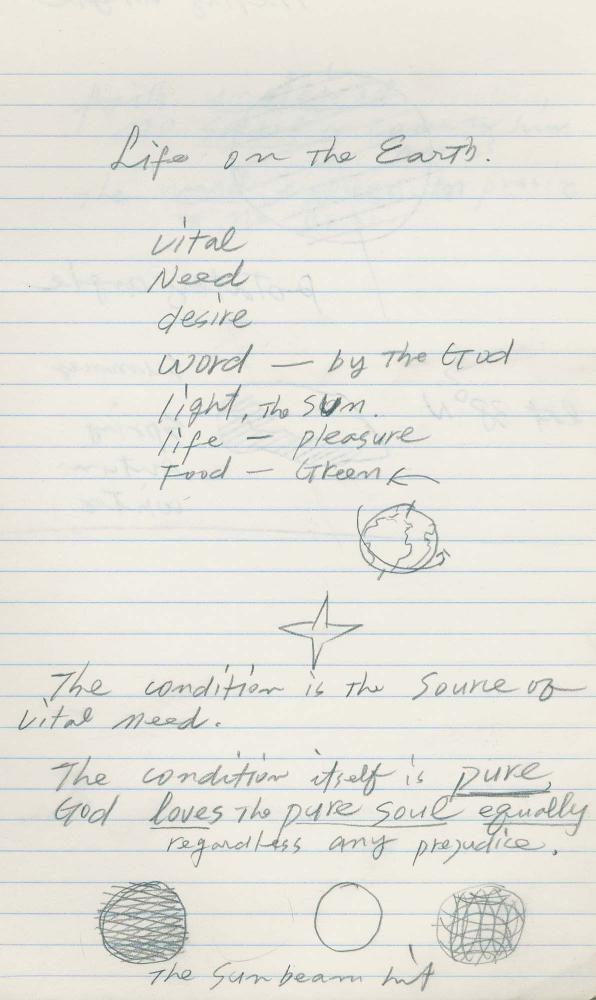 Life on the Earth.
vital
Need
desire
word — by the God
light, the sun.
life — pleasure
Food — Green
The condition is the Source of
vital need.
The condition itself is pure,
God loves the pure soul equally
regardless any prejudice.
The Sunbeam hit